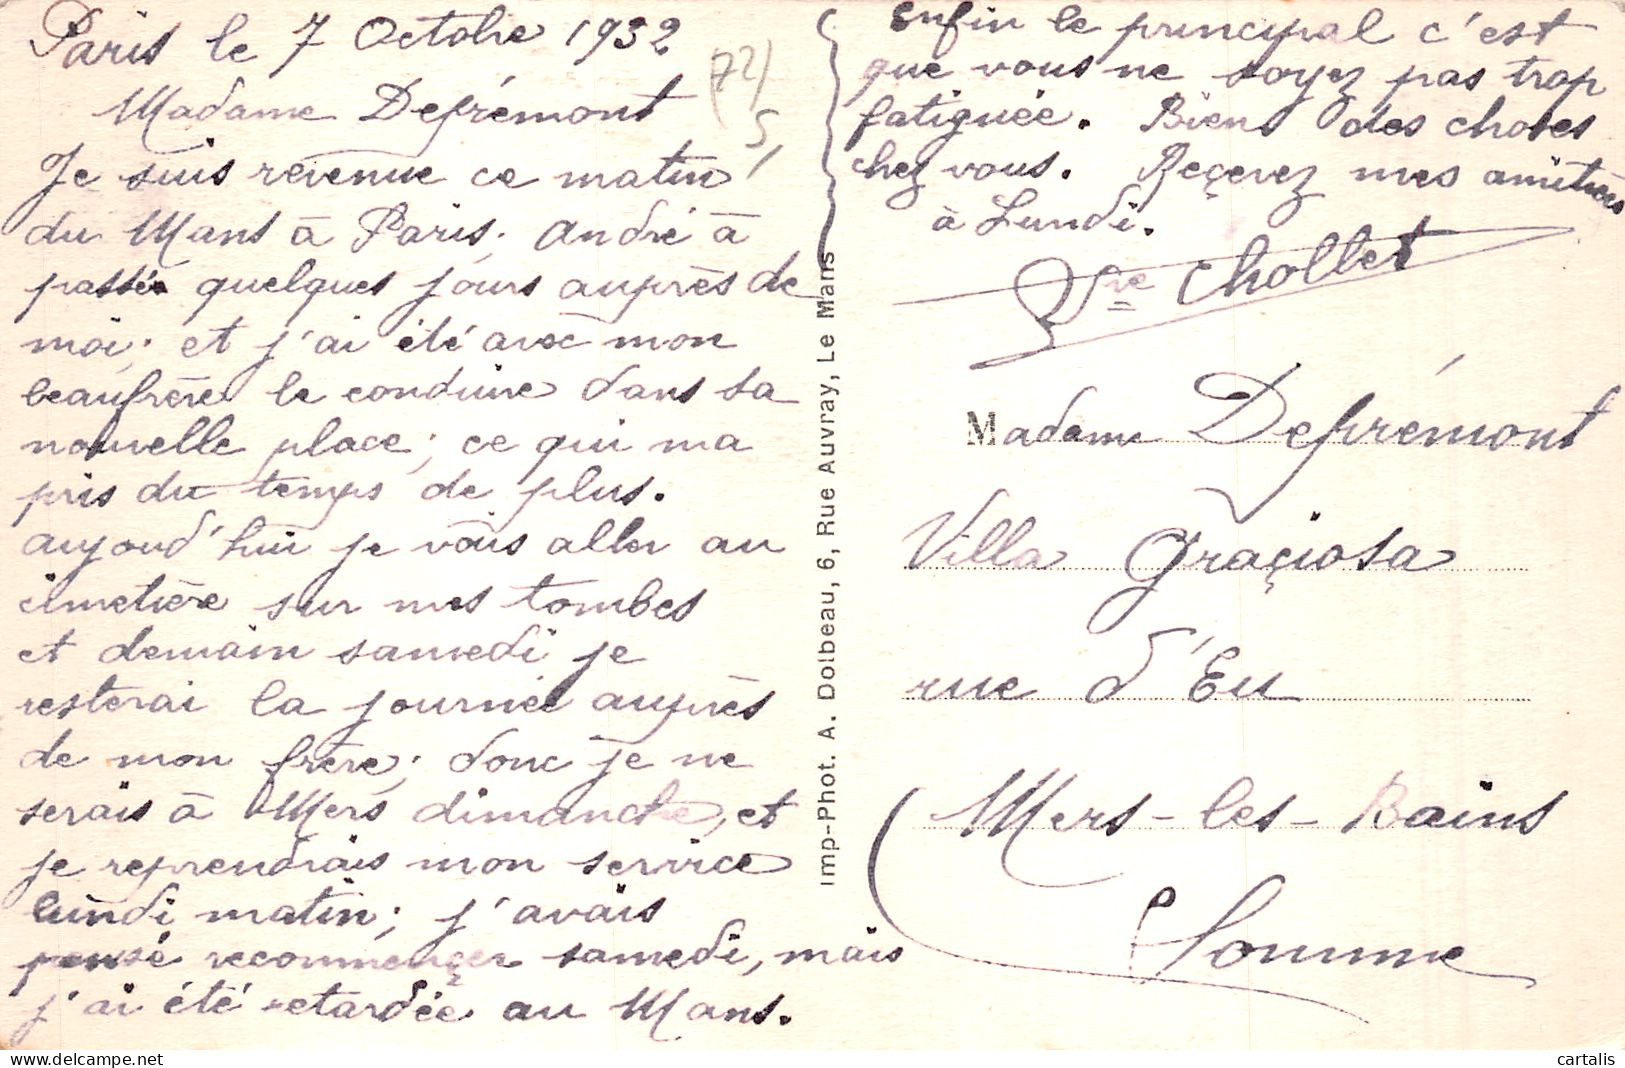 Paris le 7 Octobre 1932
Madame Defrémont
Je suis revenue ce matin
du Mans à Paris. André à
passée quelques jours auprès de
moi; et j'ai été avec mon
beaufrère le conduire dans sa
nouvelle place; ce qui ma
pris du temps de plus.
aujourd'hui je vais aller au
cimetière sur mes tombes
et demain samedi je
resterai la journée auprès
de mon frère; donc je ne
serais à Mers dimanche, et
je reprendrais mon service
lundi matin; j'avais
pensé recommençer samedi, mais
j'ai été retardée au Mans.
(72)
5,
Imp-Phot. A. Dolbeau, 6, Rue Auvray, Le Mans
Enfin le principal c'est
que vous ne soyez pas trop
fatiguée. Biens des choses
chez vous. Reçevez mes amitiées
à Lundi.
Vve Chollet
Madame Defrémont
Villa Graçiosa
rue d'Eu
Mers-les-Bains
Somme
cartalis